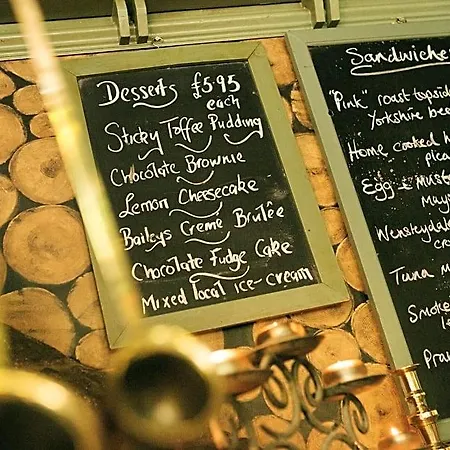 Desserts £5.95
each
Sticky Toffee Pudding
Chocolate Brownie
Lemon Cheesecake
Baileys Creme Brulée
Chocolate Fudge Cake
Mixed local ice-cream
Sandwiche
"Pink" roast topsid
Yorkshire bee
Home cooked h
pica
Egg + must
May
Wensleydal
cr
Tuna m
Smoke
Pra